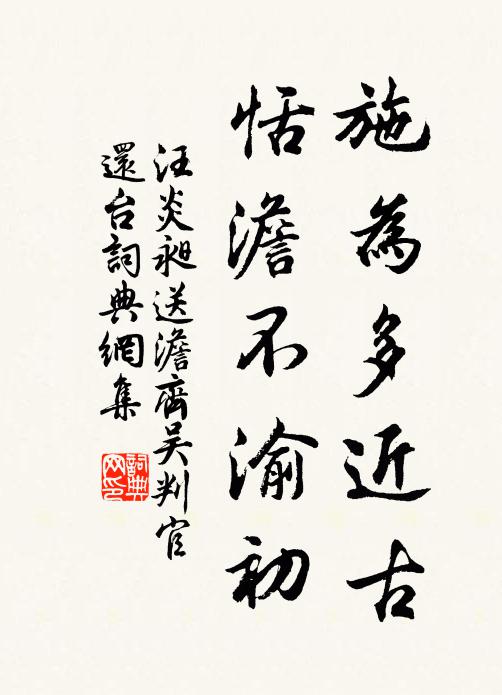 施為多近古
恬澹不渝初
汪炎昶送澹齊吳判官
還台詞典網集
詞典
网印